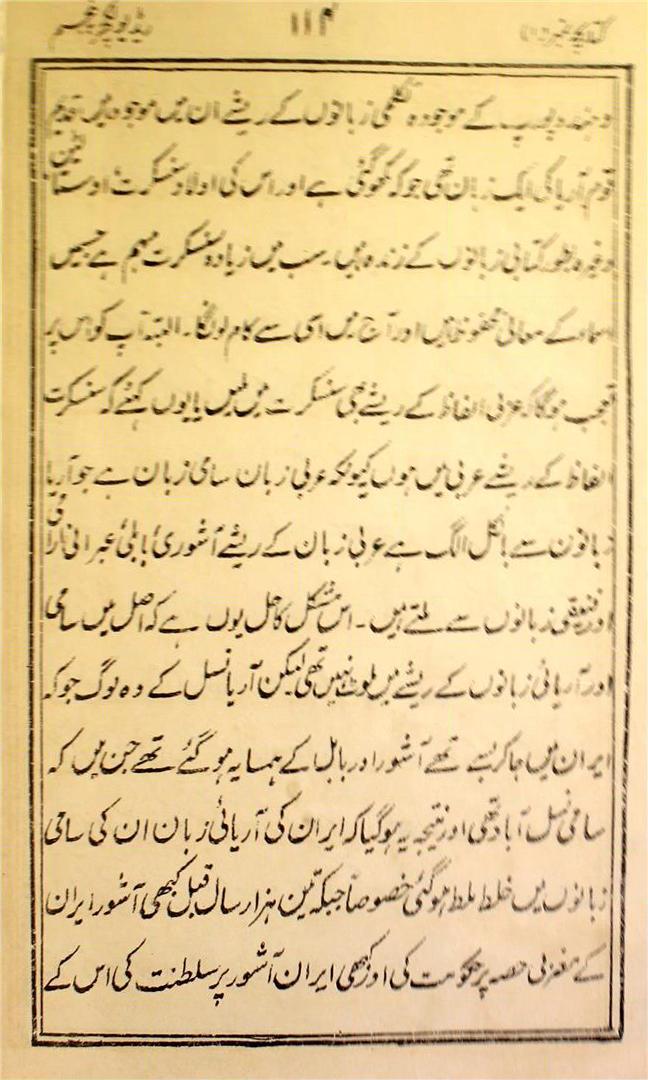 ۱۱۴
و ہند و یورپ کے موجودہ تکلمی زبانوں کے ریشے ان میں موجود ہیں قدیم
قوم آریا کی ایک زبان تھی جو کہ کھو گئی ہے اور اس کی اولاد سنسکرت اوستا لیٹن
وغیرہ بطور کتابی زبانوں کے زندہ ہیں۔ سب میں زیادہ سنسکرت مہم ہے جسمیں
اسماء کے معانی محفوظ ہیں اور آج میں اسی سے کام لونگا۔ البتہ آپ کو اس پر
تعجب ہوگا کہ عربی الفاظ کے ریشے بھی سنسکرت میں ملیں یا یوں کہئے کہ سنسکرت
الفاظ کے ریشے عربی میں ہوں کیونکہ عربی زبان سامی زبان ہے جو آریا
زبانون سے بالکل الگ ہے عربی زبان کے ریشے آشوری بابلی عبرانی
اور فنیقی زبانوں سے ملتے ہیں۔ اس مشکل کا حل یوں ہے کہ اصل میں سامی
اور آریائی زبانوں کے ریشے میں لوٹ نہیں تھی لیکن آریا نسل کے وہ لوگ جو کہ
ایران میں جا کر بسے تھے آشور اور بابل کے ہمسایہ ہو گئے تھے جن میں کہ
سامی نسل آباد تھی اور نتیجہ یہ ہو گیا کہ ایران کی آریائی زبان ان کی سامی
زبانوں میں خلط ملط ہو گئی خصوصاً جبکہ تین ہزار سال قبل کبھی آشور ایران
کے مغربی حصہ پر حکومت کی اور کبھی ایران آشور پر سلطنت کی اس کے